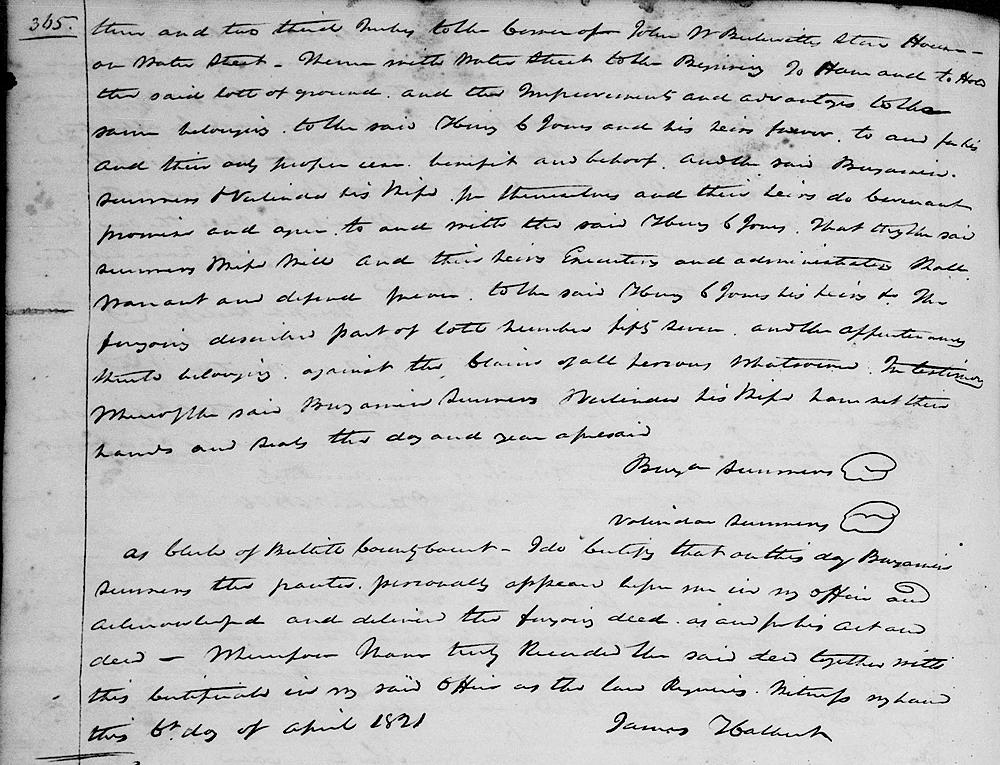 365.
there and two third Inches to the Corner of John W Beckwiths Store House –
on Water Street – Thence with Water Street to the Begining To Have and to Hold
the said lott of ground. and the Improvements and advantages to the
same belonging. to the said Henry C Jones and his heirs forever. to and for his
and their only proper use. benefit and behoof. And the said Benjamin.
Summers & Verlinda his Wife. for themselves and their heirs do Covenant
promise and agree. to and with the said Henry C Jones. That they the said
Summers Wife Will And their heirs Executors and administrators Shall
Warrant and defend forever. to the said Henry C Jones his heirs & The
forgoing described part of lott Number fifty Seven. and the appertenances
thereto belonging. against the Claims of all persons Whatsoever. In testimony
Whereof the said Benjamin Summers Verlinda his Wife have set their
hands and seals the day and year aforesaid
Benja Summers
Verlindar Summers
As Clerk of County Court – I do Certify that on this day Benjamin
Summers the grantor. personally appeared before me in my office and
acknowledged and delivered the forgoing deed. as and for his act and
deed – Wherefore I have truly Recorded the said deed together with
this Certificate in my said Office as the law Requires. Witness my hand
this 6th day of April 1821
James Halbert